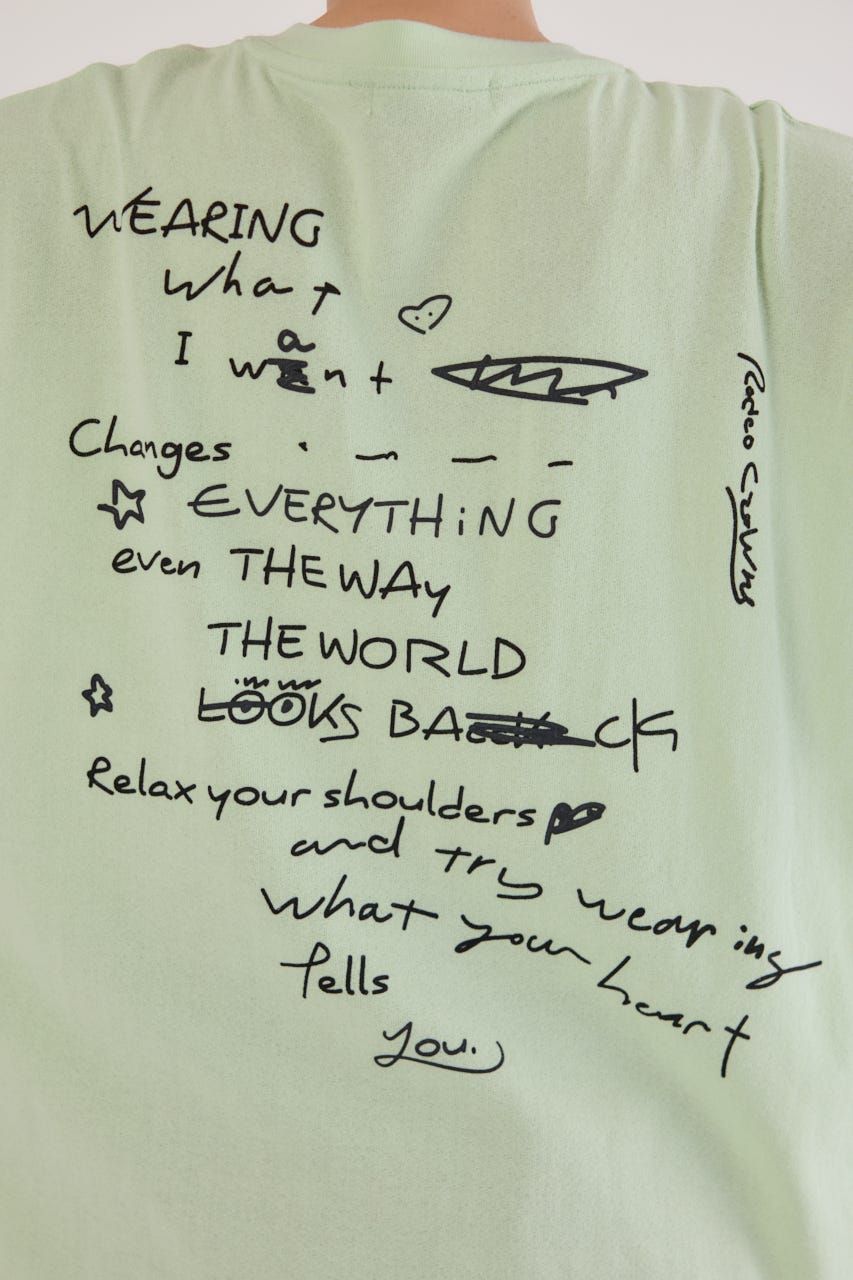 WEARING
what
I want
Changes . — — —
EVERYTHiNG
even THE WAy
THE WORLD
LOOKS BACK
Relax your shoulders
and try wearing
what your heart
Tells
you.
Rodeo Crowns